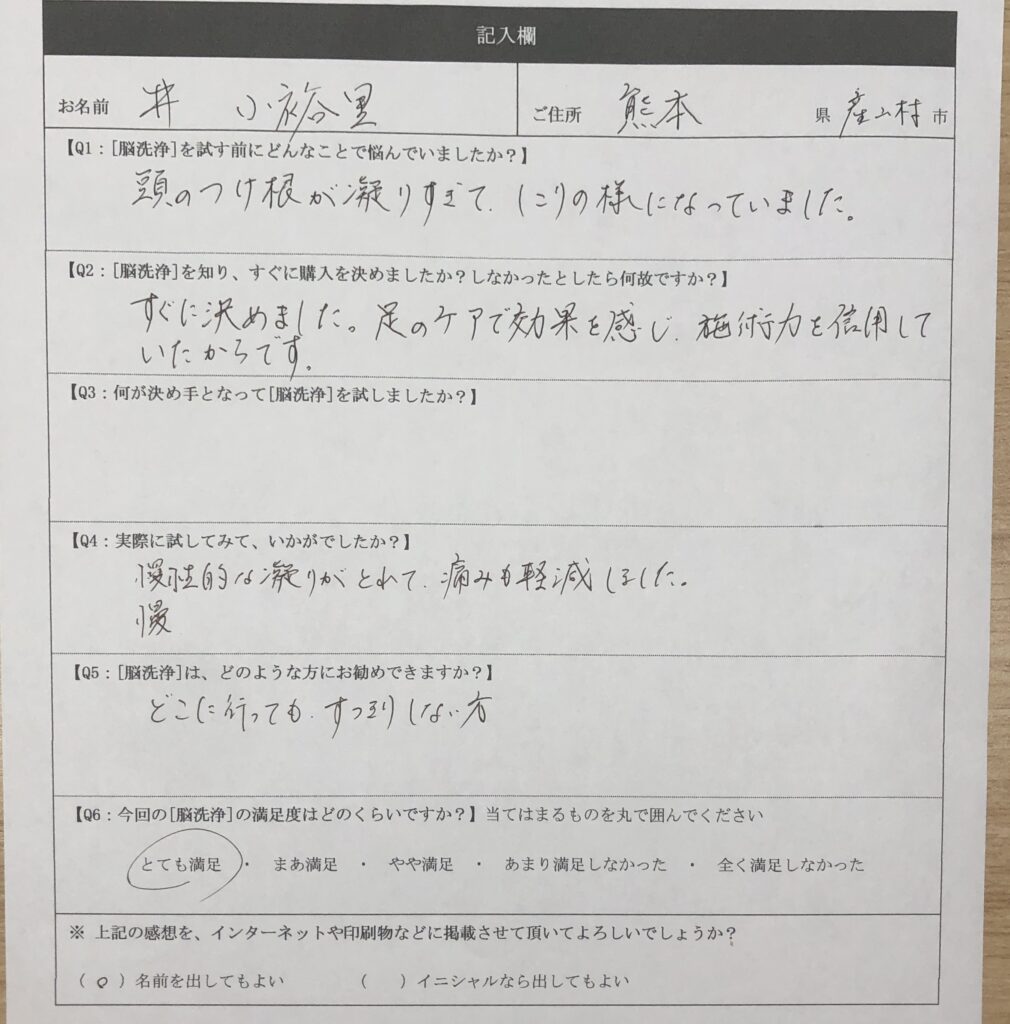 記入欄
お名前 井 小裕里 ご住所 熊本 県 産山村 市
【Q1：[脳洗浄]を試す前にどんなことで悩んでいましたか？】
頭のつけ根が凝りすぎて、しこりの様になっていました。
【Q2：[脳洗浄]を知り、すぐに購入を決めましたか？しなかったとしたら何故ですか？】
すぐに決めました。足のケアで効果を感じ、施術力を信用して
いたからです。
【Q3：何が決め手となって[脳洗浄]を試しましたか？】
【Q4：実際に試してみて、いかがでしたか？】
慢性的な凝りがとれて、痛みも軽減しました。
慢
【Q5：[脳洗浄]は、どのような方にお勧めできますか？】
どこに行っても、すっきりしない方
【Q6：今回の[脳洗浄]の満足度はどのくらいですか？】当てはまるものを丸で囲んでください
とても満足 ・ まあ満足 ・ やや満足 ・ あまり満足しなかった ・ 全く満足しなかった
※ 上記の感想を、インターネットや印刷物などに掲載させて頂いてよろしいでしょうか？
（ ○ ）名前を出してもよい （ ）イニシャルなら出してもよい